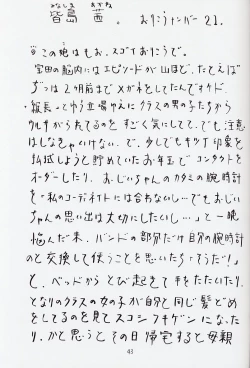 みなしま あかね
皆島 茜。 おりこうナンバー21。
※この娘はもお、スゴイおりこうで。
宝田の脳内にはエピソードが山ほど。たとえば
じつは2ヶ月前までメガネをしてたんですケド。
・級長、てゆう立場ゆえにクラスの男の子たちから
ケルキがられてるのを すごく気にしてて。でも注意
はしなきゃいけない、で、少しでもキツイ印象を
払拭しようと貯めていたお年玉でコンタクトを
オーダーしたり、おじいちゃんのカタミの腕時計
を「私のコーディネイトには合わないし…でもおじい
ちゃんの思い出は大切にしたいし…」と一晩
悩んだ末、バンドの部分だけ自分の腕時計
のと交換して使うことを思いたち「そうだ！」
と、ベッドからとび起きて手をたたいたり、
となりのクラスの女の子が自分と同じ髪どめ
をしてるのを見てスコシフキゲンになった
り。かと思うとその日帰宅すると母親
43